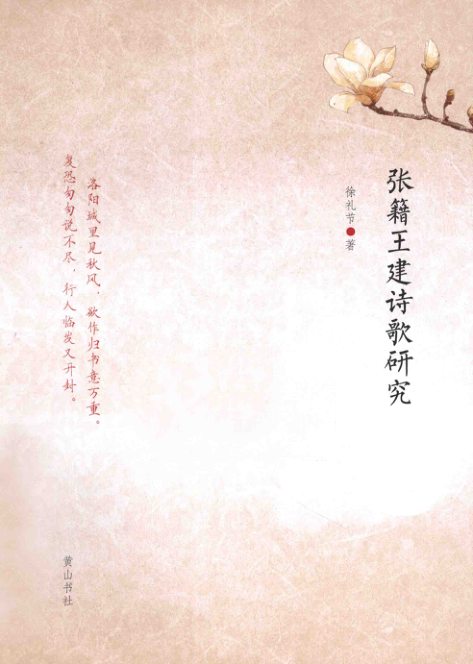 张籍王建诗歌研究
徐礼节●著
洛阳城里见秋风，欲作归书意万重。
复恐匆匆说不尽，行人临发又开封。
黄山书社